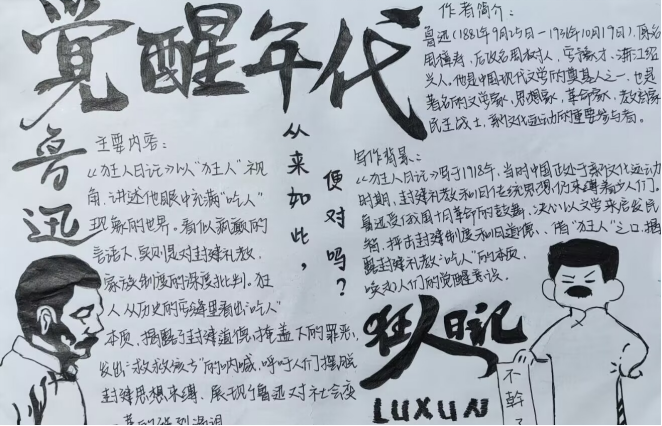 觉醒年代
鲁迅
作者简介：
鲁迅（1881年9月25日-1936年10月19日），原名
周樟寿，后改名周树人，字豫才，浙江绍
兴人。他是中国现代文学的奠基人之一，也是
著名的文学家，思想家，革命家，教育家
民主战士，新文化运动的重要参与者。
主要内容：
《狂人日记》以“狂人”视
角，讲述他眼中充满“吃人”
现象的世界。看似疯癫的
言语下，实则是对封建礼教，
家族制度的深度批判。狂
人从历史的字缝里看出“吃人”
本质，揭露了封建道德掩盖下的罪恶，
发出“救救孩子”的呐喊，呼吁人们摆脱
封建思想束缚，展现了鲁迅对社会变
革的强烈渴望
从来如此，
便对吗？
写作背景：
《狂人日记》写于1918年，当时中国正处于新文化运动
时期，封建礼教和旧传统思想仍束缚着人们。
鲁迅受俄国十月革命的鼓舞，决心以文学来启发民
智，抨击封建制度和旧道德、借“狂人”之口，揭
露封建礼教“吃人”的本质，
唤起人们的觉醒意识。
狂人日记
LUXUN
不干了